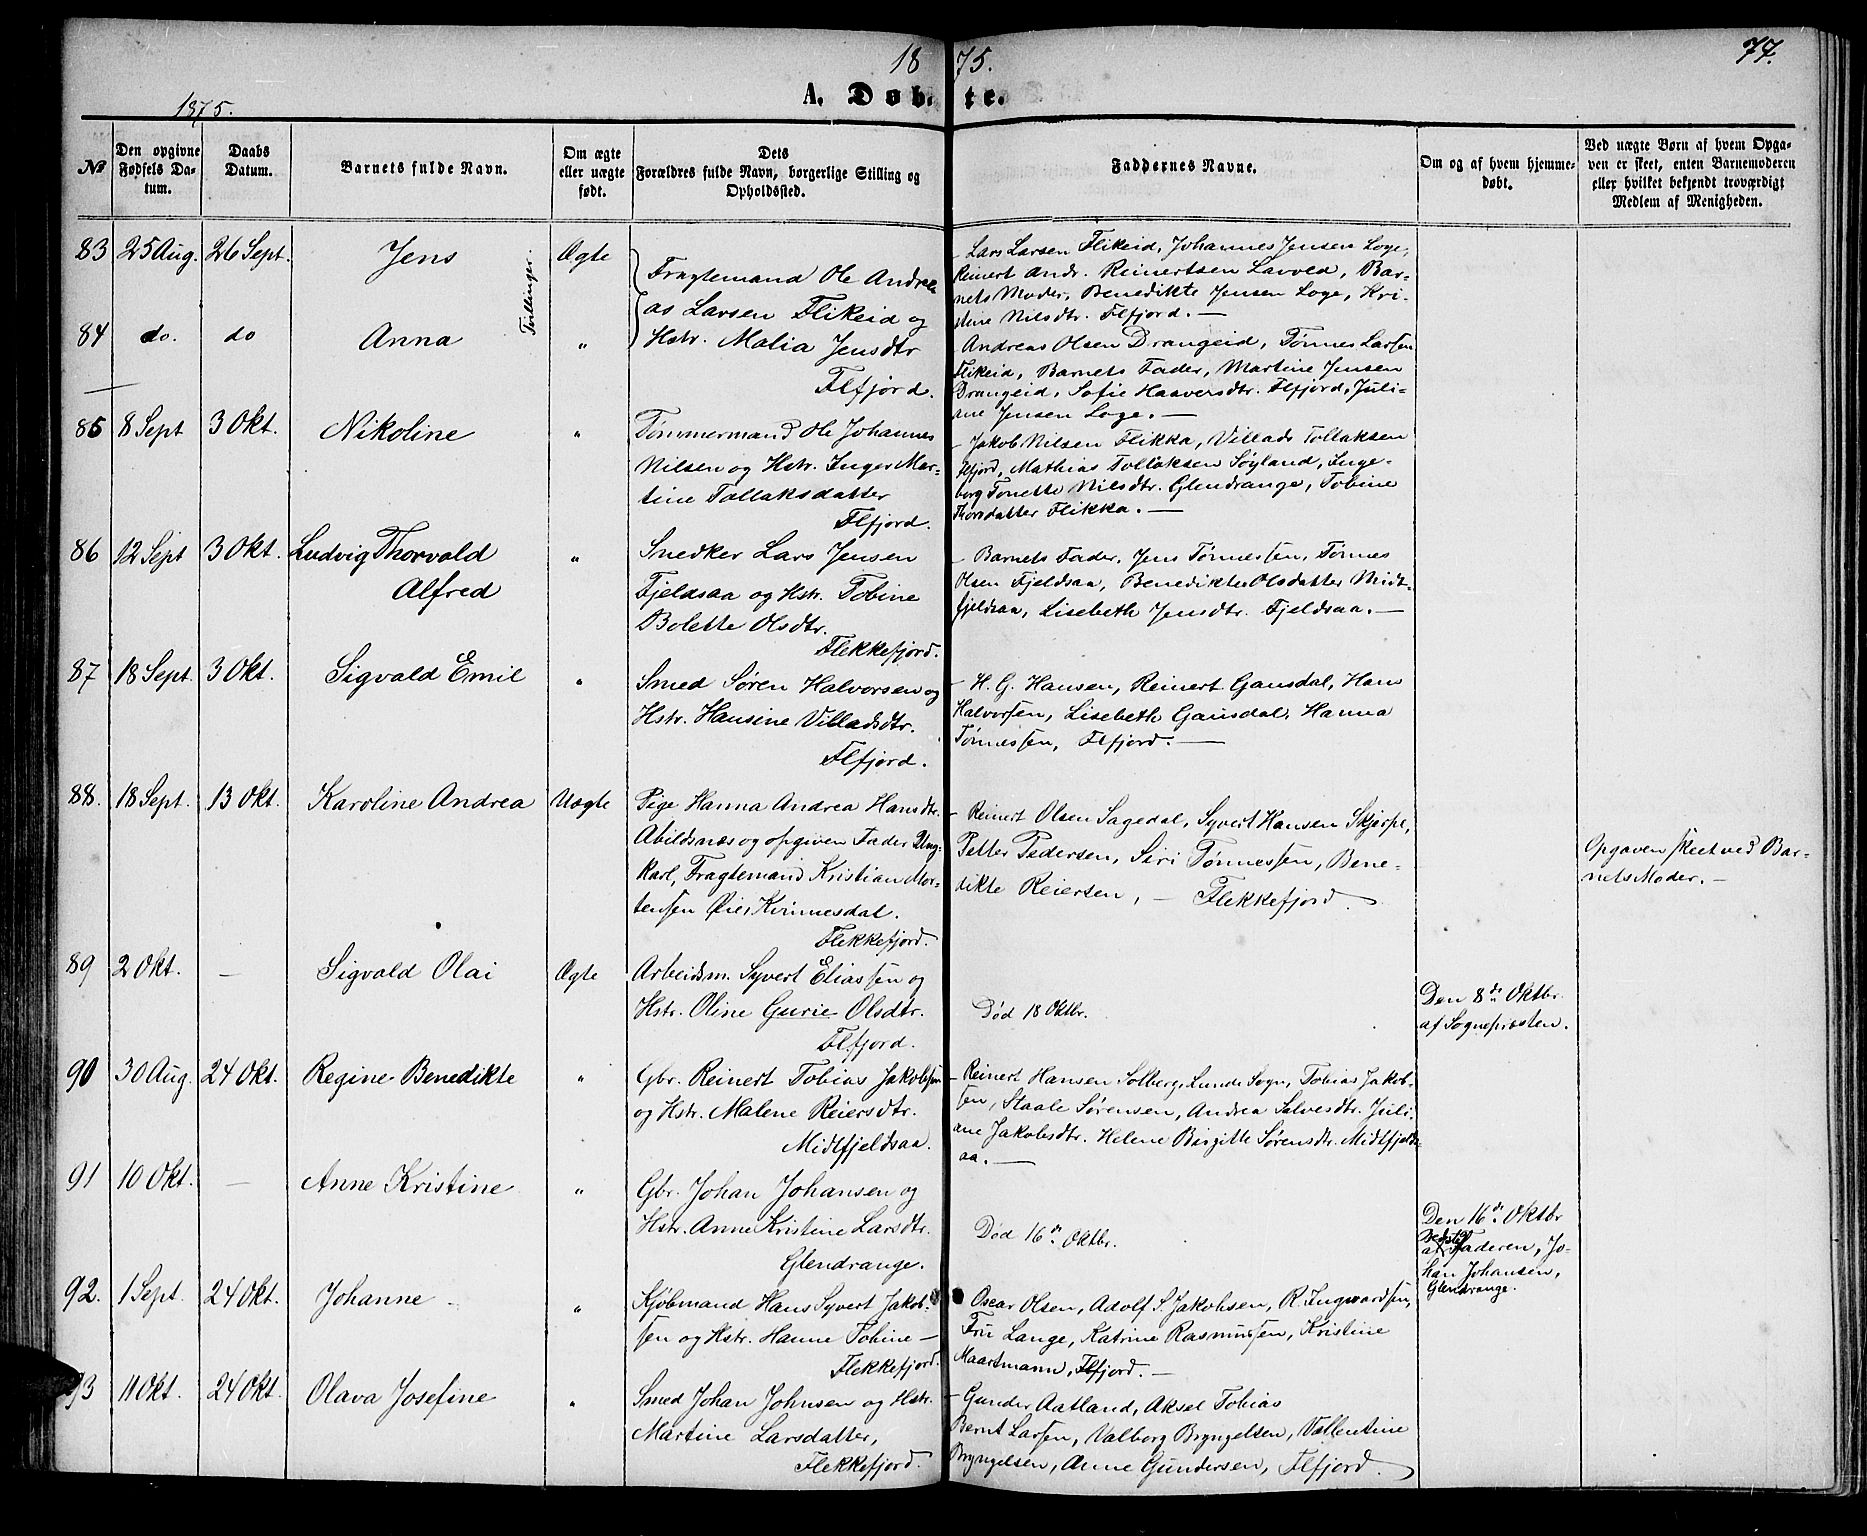 18 75. 77.
A. Døb- te.
1875.
No
Den opgivne Fødsels Datum.
Daabs Datum.
Barnets fulde Navn.
Om ægte eller uægte født.
Dets Forældres fulde Navn, borgerlige Stilling og Opholdssted.
Faddernes Navne.
Om og af hvem hjemmedøbt.
Ved uægte Børn af hvem Opgaven er skeet, enten Barnemoderen eller hvilket bekjendt troværdigt Medlem af Menigheden.
83 25 Aug. 26 Sept. Jens Ægte
Tvillinger.
84 do. do Anna "
Fragtemand Ole Andre-
as Larsen Flikeid og
Hstr. Malia Jensdtr
Flfjord.
- Lars Larsen Flikeid, Johannes Jensen Loge,
Reinert Andr. Reinertsen Lavold, Bar-
nets Moder, Benedikte Jensen Loge, Kri-
stine Nilsdtr. Flfjord. —
- Andreas Olsen Drangeid, Tønnes Larsen
Flikeid, Barnets Fader, Martine Jensen
Drangeid, Sofie Haaversdtr. Flfjord, Juli-
ane Jensen Loge. —
85 8 Sept 3 Okt. Nikoline "
Tømmermand Ole Johannes
Nilsen og Hstr. Inger Mar-
tine Tollaksdatter
Flfjord.
- Jakob Nilsen Flikka, Villads Tollaksen
Flfjord, Mathias Tollaksen Søyland, Inge-
borg Tonette Nilsdtr. Glendrange, Tobine
Thorsdatter Flikka. —
86 12 Sept 3 Okt. Ludvig Thorvald
Alfred "
Snedker Lars Jensen
Fjeldsaa og Hstr. Tobine
Bolette Olsdtr.
Flekkefjord.
- Barnets Fader, Jens Tønnessen, Tønnes
Olsen Fjeldsaa, Benedikte Olsdatter Midt-
fjeldsaa, Lisebeth Jensdtr. Fjeldsaa. —
87 18 Sept. 3 Okt. Sigvald Emil "
Smed Søren Halvorsen og
Hstr. Hansine Villadsdtr.
Flfjord.
- H. G. Hansen, Reinert Gausdal, Hans
Halvorsen, Lisebeth Gausdal, Hanna
Tønnessen, Flfjord. —
88. 18 Sept. 13 Okt. Karoline Andrea Uægte
Pige Hanna Andrea Hansdtr.
Abildsnæs og opgiven Fader Ung-
karl, Fragtemand Kristian Mor-
tensen Øie, Kvinnesdal.
Flekkefjord.
- Reinert Olsen Sagedal, Syvert Hansen Skjerpe,
Petter Pedersen, Siri Tønnessen, Bene-
dikte Reiersen, — Flekkefjord.
Opgaven skeet ved Bar-
nets Moder. —
89 2 Okt. — Sigvald Olai Ægte
Arbeidsm. Syvert Eliassen og
Hstr. Oline Gurie Olsdtr.
Flfjord.
Død 18 Oktbr.
Den 8de Oktbr.
af Sognepresten.
90 30 Aug. 24 Okt. Regine Benedikte "
Gbr. Reinert Tobias Jakobsen
og Hstr. Malene Reiersdtr.
Midtfjeldsaa.
- Reinert Hansen Solberg, Lunde Sogn, Tobias Jakob-
sen, Staale Sørensen, Andrea Salvesdtr. Juli-
ane Jakobsdtr. Helene Birgitte Sørensdtr. Midtfjelds-
aa. —
91 10 Okt. — Anne Kristine "
Gbr. Johan Johansen og
Hstr. Anne Kristine Larsdtr.
Glendrange.
Død 16de Oktbr.
Den 16de Oktbr
af Faderen, Jo-
han Johansen,
Glendrange.
92. 1 Sept. 24 Okt. Johanne - "
Kjøbmand Hans Syvert Jakob-
sen og Hstr. Hanne Tobine —
Flekkefjord.
Oscar Olsen, Adolf S. Jakobsen, R. Ingwardsen,
Fru Lange, Katrine Rasmussen, Kristine
Maartmann, Flfjord. —
93 11 Okt. 24 Okt. Olava Josefine "
Smed Johan Johnsen og Hstr.
Martine Larsdatter,
Flekkefjord.
- Gunder Aatland, Aksel Tobias
Bernt Larsen, Valborg Bryngelsen, Vallentine
Bryngelsen, Anne Gundersen, Flfjord.